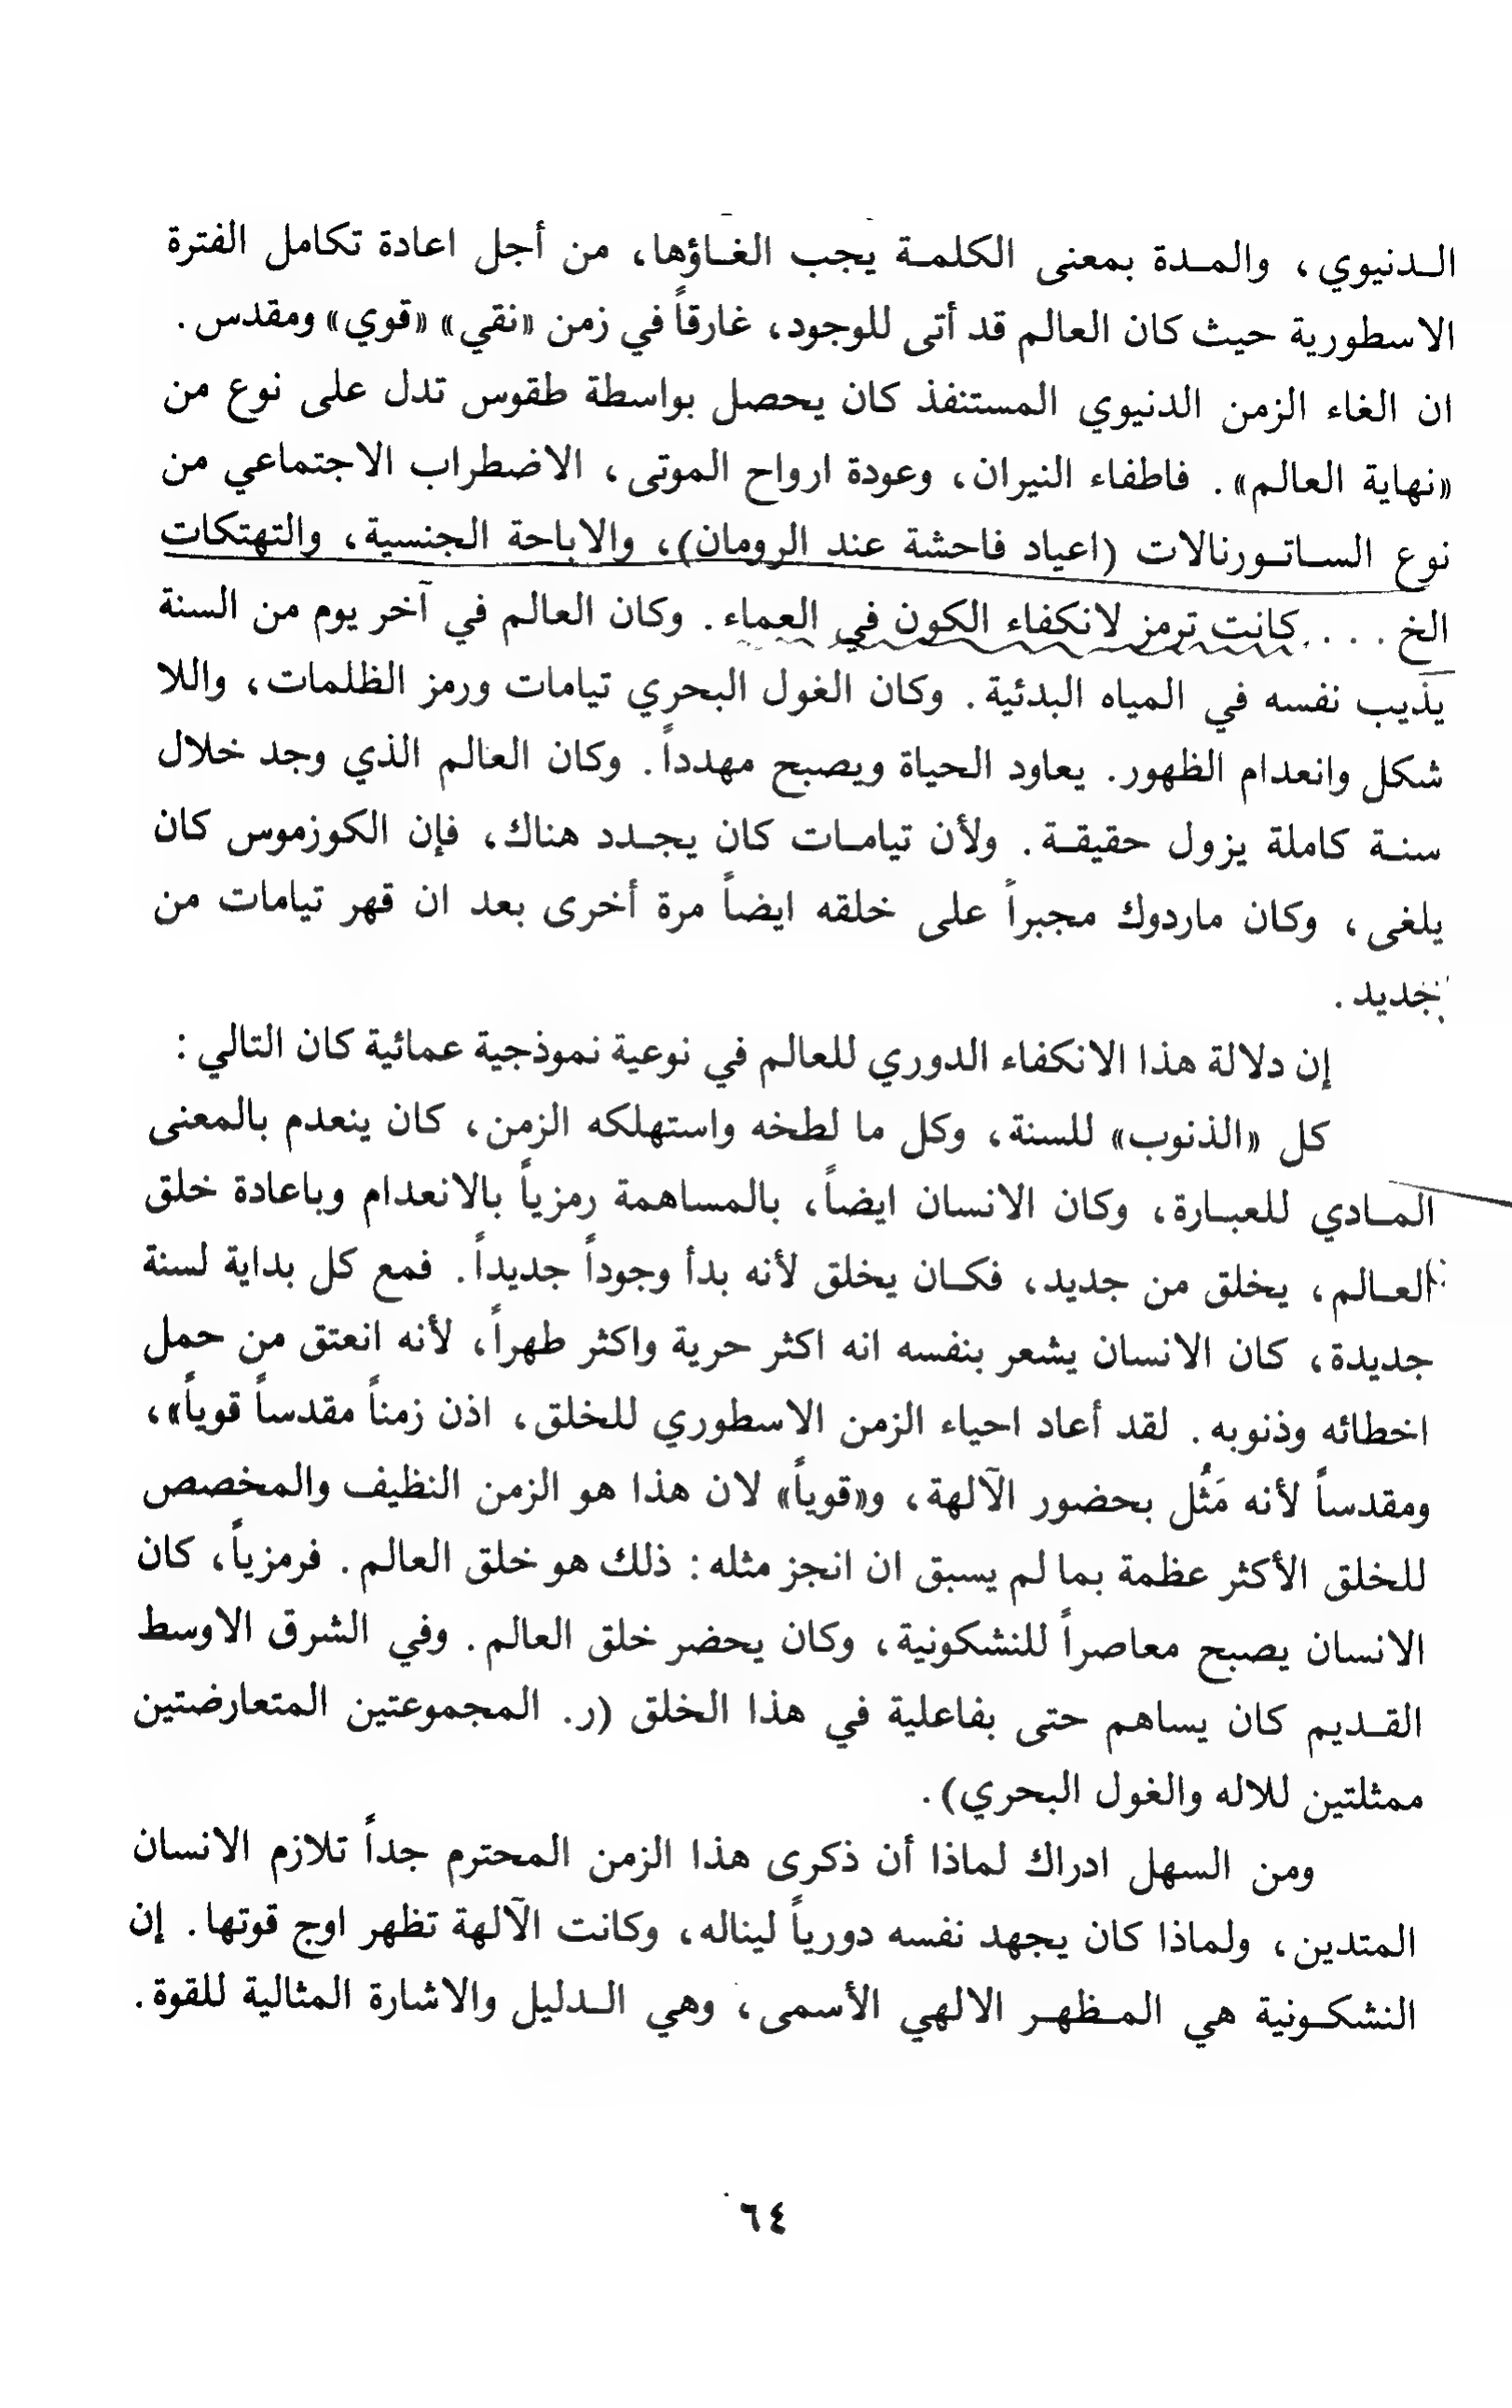 الدنيوي، والمدة بمعنى الكلمة يجب الغاؤها، من أجل اعادة تكامل الفترة
الاسطورية حيث كان العالم قد أتى للوجود، غارقاً في زمن «نقي» «قوي» ومقدس.
ان الغاء الزمن الدنيوي المستنفذ كان يحصل بواسطة طقوس تدل على نوع من
«نهاية العالم». فاطفاء النيران، وعودة ارواح الموتى، الاضطراب الاجتماعي من
نوع الساتورنالات (اعياد فاحشة عند الرومان)، والاباحة الجنسية، والتهتكات
الخ .... كانت ترمز لانكفاء الكون في العماء. وكان العالم في آخر يوم من السنة
يذيب نفسه في المياه البدئية. وكان الغول البحري تيامات ورمز الظلمات، واللا
شكل وانعدام الظهور. يعاود الحياة ويصبح مهدداً. وكان العالم الذي وجد خلال
سنة كاملة يزول حقيقة. ولأن تيامات كان يجدد هناك، فإن الكوزموس كان
يلغى، وكان ماردوك مجبراً على خلقه ايضاً مرة أخرى بعد ان قهر تيامات من
جديد.
إن دلالة هذا الانكفاء الدوري للعالم في نوعية نموذجية عمائية كان التالي:
كل «الذنوب» للسنة، وكل ما لطخه واستهلكه الزمن، كان ينعدم بالمعنى
المادي للعبارة، وكان الانسان ايضاً، بالمساهمة رمزياً بالانعدام وباعادة خلق
العالم، يخلق من جديد، فكان يخلق لأنه بدأ وجوداً جديداً. فمع كل بداية لسنة
جديدة، كان الانسان يشعر بنفسه انه اكثر حرية واكثر طهراً، لأنه انعتق من حمل
اخطائه وذنوبه. لقد أعاد احياء الزمن الاسطوري للخلق، اذن زمناً مقدساً قوياً»،
ومقدساً لأنه مَثُل بحضور الآلهة، و«قوياً» لان هذا هو الزمن النظيف والمخصص
للخلق الأكثر عظمة بما لم يسبق ان انجز مثله: ذلك هو خلق العالم. فرمزياً، كان
الانسان يصبح معاصراً للنشكونية، وكان يحضر خلق العالم. وفي الشرق الاوسط
القديم كان يساهم حتى بفاعلية في هذا الخلق (ر. المجموعتين المتعارضتين
ممثلتين للاله والغول البحري).
ومن السهل ادراك لماذا أن ذكرى هذا الزمن المحترم جداً تلازم الانسان
المتدين، ولماذا كان يجهد نفسه دورياً ليناله، وكانت الآلهة تظهر اوج قوتها. إن
النشكونية هي المظهر الالهي الأسمى، وهي الدليل والاشارة المثالية للقوة.
٦٤